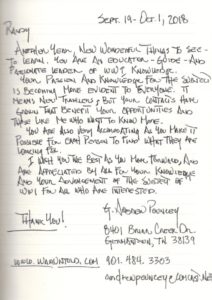 Sept. 19 - Oct. 1, 2018
Randy
Another year, now wonderful things to see -
to learn. You are an educator - guide - and
passionate leader of WWI knowledge.
Your passion and knowledge for the subject
is becoming more evident to everyone. It
means new travelers, but your contacts have
grown that benefit your opportunities and
those like me who want to know more.
You are also very accommodating as you make it
possible for each person to find what they are
looking for.
I wish you the best as you move forward, and
are appreciated by all for your knowledge
and your advancement of the subject of
WWI for all who are interested.
Thank You!
G. Andrew
8401 Creek Dr.
Germantown, TN 38139
901. 484. 3303